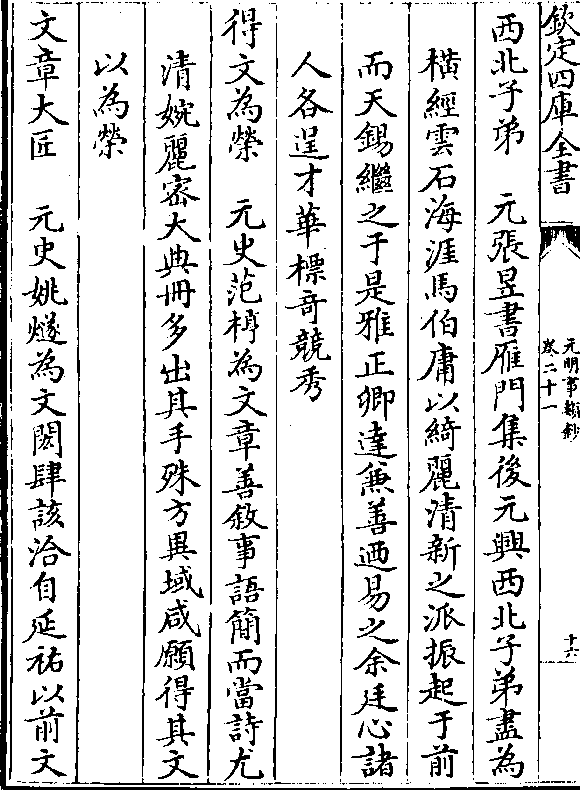 欽定四庫全書
元明事類鈔
卷二十一
十六
西北子弟　元張昱書雁門集後元興西北子弟盡為
横經雲石海涯馬伯庸以綺麗清新之派振起于前
而天錫繼之于是雅正卿達兼善迺易之余廷心諸
人各逞才華標奇競秀
得文為榮　元史范梈為文章善敘事語簡而當詩尤
清婉麗密大典冊多出其手殊方異域咸願得其文
以為榮
文章大匠　元史姚燧為文閎肆該洽自延祐以前文